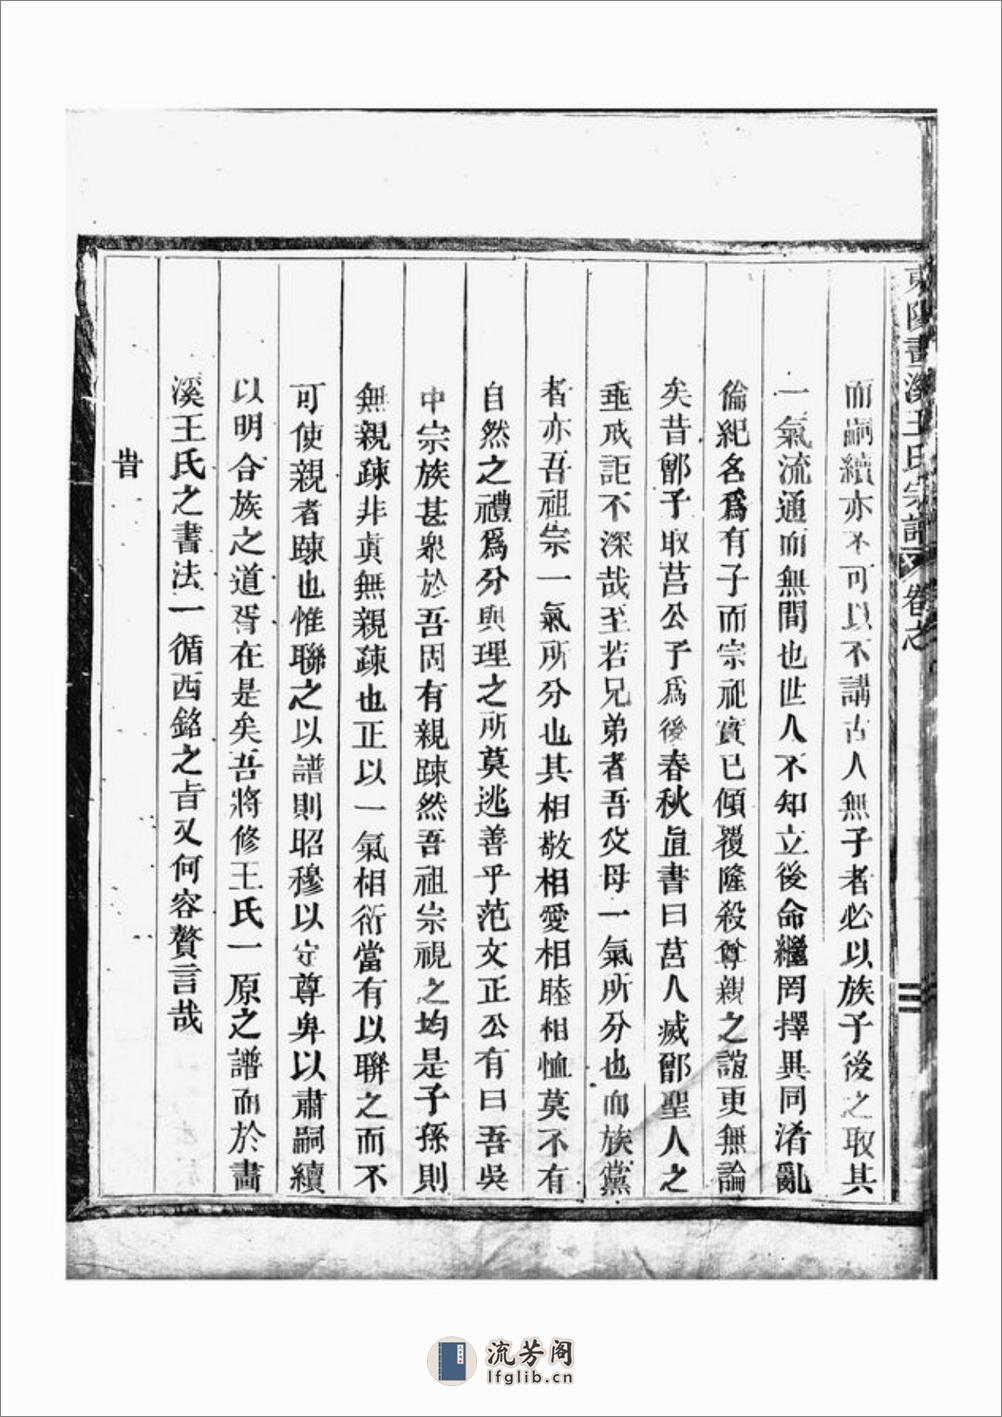 東陽畫溪王氏宗譜 卷之
而嗣續亦不可以不講古人無子者必以族子後之取其
一氣流通而無間也世人不知立後命繼罔擇異同淆亂
倫紀名爲有子而宗祀實已傾覆隆殺尊親之誼更無論
矣昔鄫子取莒公子爲後春秋直書曰莒人滅鄫聖人之
垂戒詎不深哉至若兄弟者吾父母一氣所分也而族黨
者亦吾祖宗一氣所分也其相敬相愛相睦相恤莫不有
自然之禮爲分與理之所莫逃善乎范文正公有曰吾吳
中宗族甚衆於吾固有親踈然吾祖宗視之均是子孫則
無親踈非眞無親踈也正以一氣相衍當有以聯之而不
可使親者踈也惟聯之以譜則昭穆以定尊卑以肅嗣續
以明合族之道胥在是矣吾將修王氏一原之譜而於畫
溪王氏之書法一循西銘之旨又何容贅言哉
旹
流芳阁
lfglib.cn